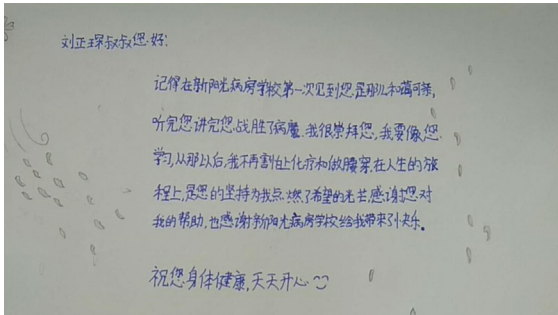 刘正琛叔叔您好:
记得在新阳光病房学校第一次见到您是那么和蔼可亲,
听完您讲完您战胜了病魔,我很崇拜您,我要像您
学习,从那以后,我不再害怕上化疗和做腰穿,在人生的旅
程上,是您的坚持为我点燃了希望的光芒,感谢您对
我的帮助,也感谢新阳光病房学校给我带来了快乐。
祝您身体健康,天天开心